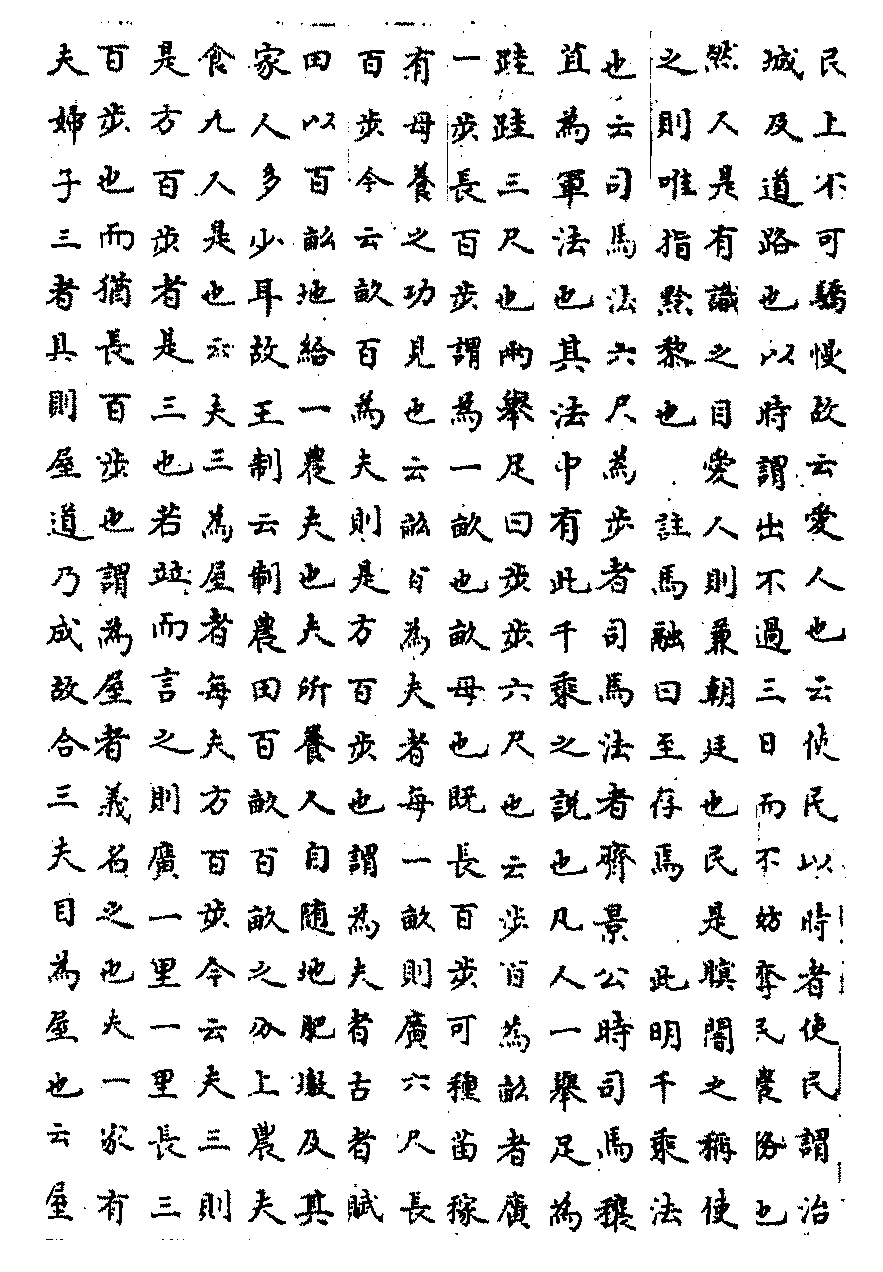 民上不可驕慢故云愛人也云使民以時者使民謂治
城及道路也以時謂出不過三日而不妨奪民農務也
然人是有識之目愛人則兼朝廷也民是瞑闇之稱使
之則唯指黔黎也　註馬融曰至存焉　此明千乘法
也云司馬法六尺為步者司馬法者齊景公時司馬穰
苴為軍法也其法中有此千乘之說也凡人一舉足為
跬跬三尺也兩舉足曰步步六尺也云步百為畝者廣
一步長百步謂為一畝也畝母也既長百步可種苗稼
有母養之功見也云畝百為夫者每一畝則廣六尺長
百步今云畝百為夫則是方百步也謂為夫者古者賦
田以百畝地給一農夫也夫所養人自隨地肥墽及其
家人多少耳故王制云制農田百畝百畝之分上農夫
食九人是也云夫三為屋者每夫方百步今云夫三則
是方百步者是三也若竝而言之則廣一里一里長三
百步也而猶長百步也謂為屋者義名之也夫一家有
夫婦子三者具則屋道乃成故合三夫目為屋也云屋